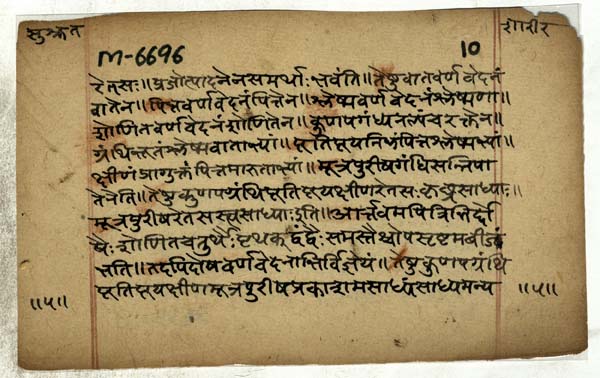 सुश्रुत
शारीर
M-6696
10
रेतसः॥प्रजोत्पादनेनसमर्थाःभवंति॥तेषुवातवर्णवेदनं
वातेन॥पित्तवर्णवेदनंपित्तेन॥श्लेष्मवर्णवेदनंश्लेष्मणा॥
शोणितवर्णवेदनंशोणितेन॥कुणपगंध्यनल्पंचरक्तेन॥
ग्रंथिभूतंश्लेष्मवाताभ्यां॥पूतिपूयनिभंपित्तश्लेष्मभ्यां॥
क्षीणंप्रागुक्तंपित्तमारुताभ्यां॥मूत्रपुरीषगंधिसन्निपा
तेनेति॥तेषुकुणपग्रंथिपूतिपूयक्षीणरेतसःकृच्छ्रसाध्याः॥
मूत्रपुरीषरेतसस्त्वसाध्याःइति॥आर्त्तवमपित्रिभिर्दो
षैःशोणितचतुर्थैःपृथक्द्वंद्वैःसमस्तैश्चोपसृष्टमबीजं
भवति॥तदपिदोषवर्णवेदनाभिर्विज्ञेयं॥तेषुकुणपग्रंथि
पूतिपूयक्षीणमूत्रपुरीषप्रकाशमसाध्यंसाध्यमन्य
॥५॥
॥५॥